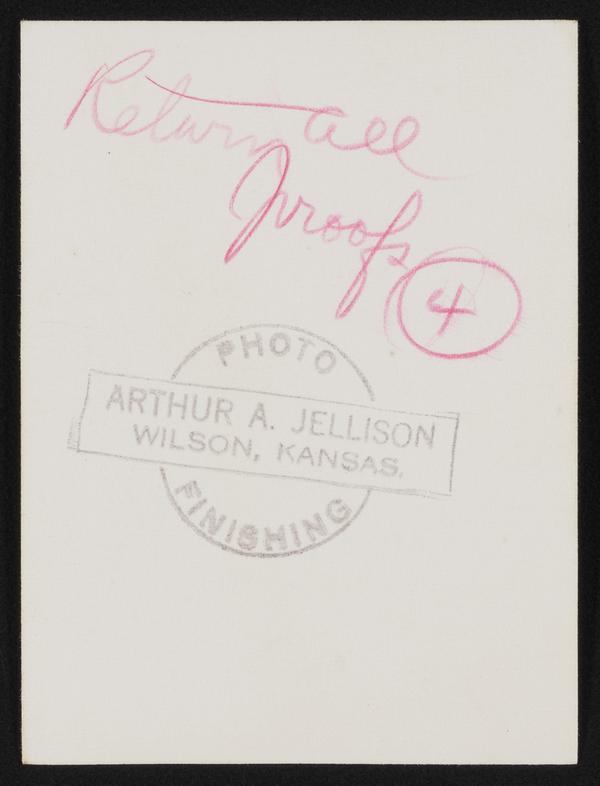 Return all
proofs
4
PHOTO
ARTHUR A. JELLISON
WILSON, KANSAS.
FINISHING